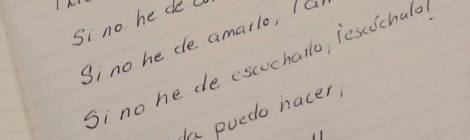 Si no he de
Si no he de amarlo,
Si no he de escucharlo, ¡escúchalo!
puedo hacer,